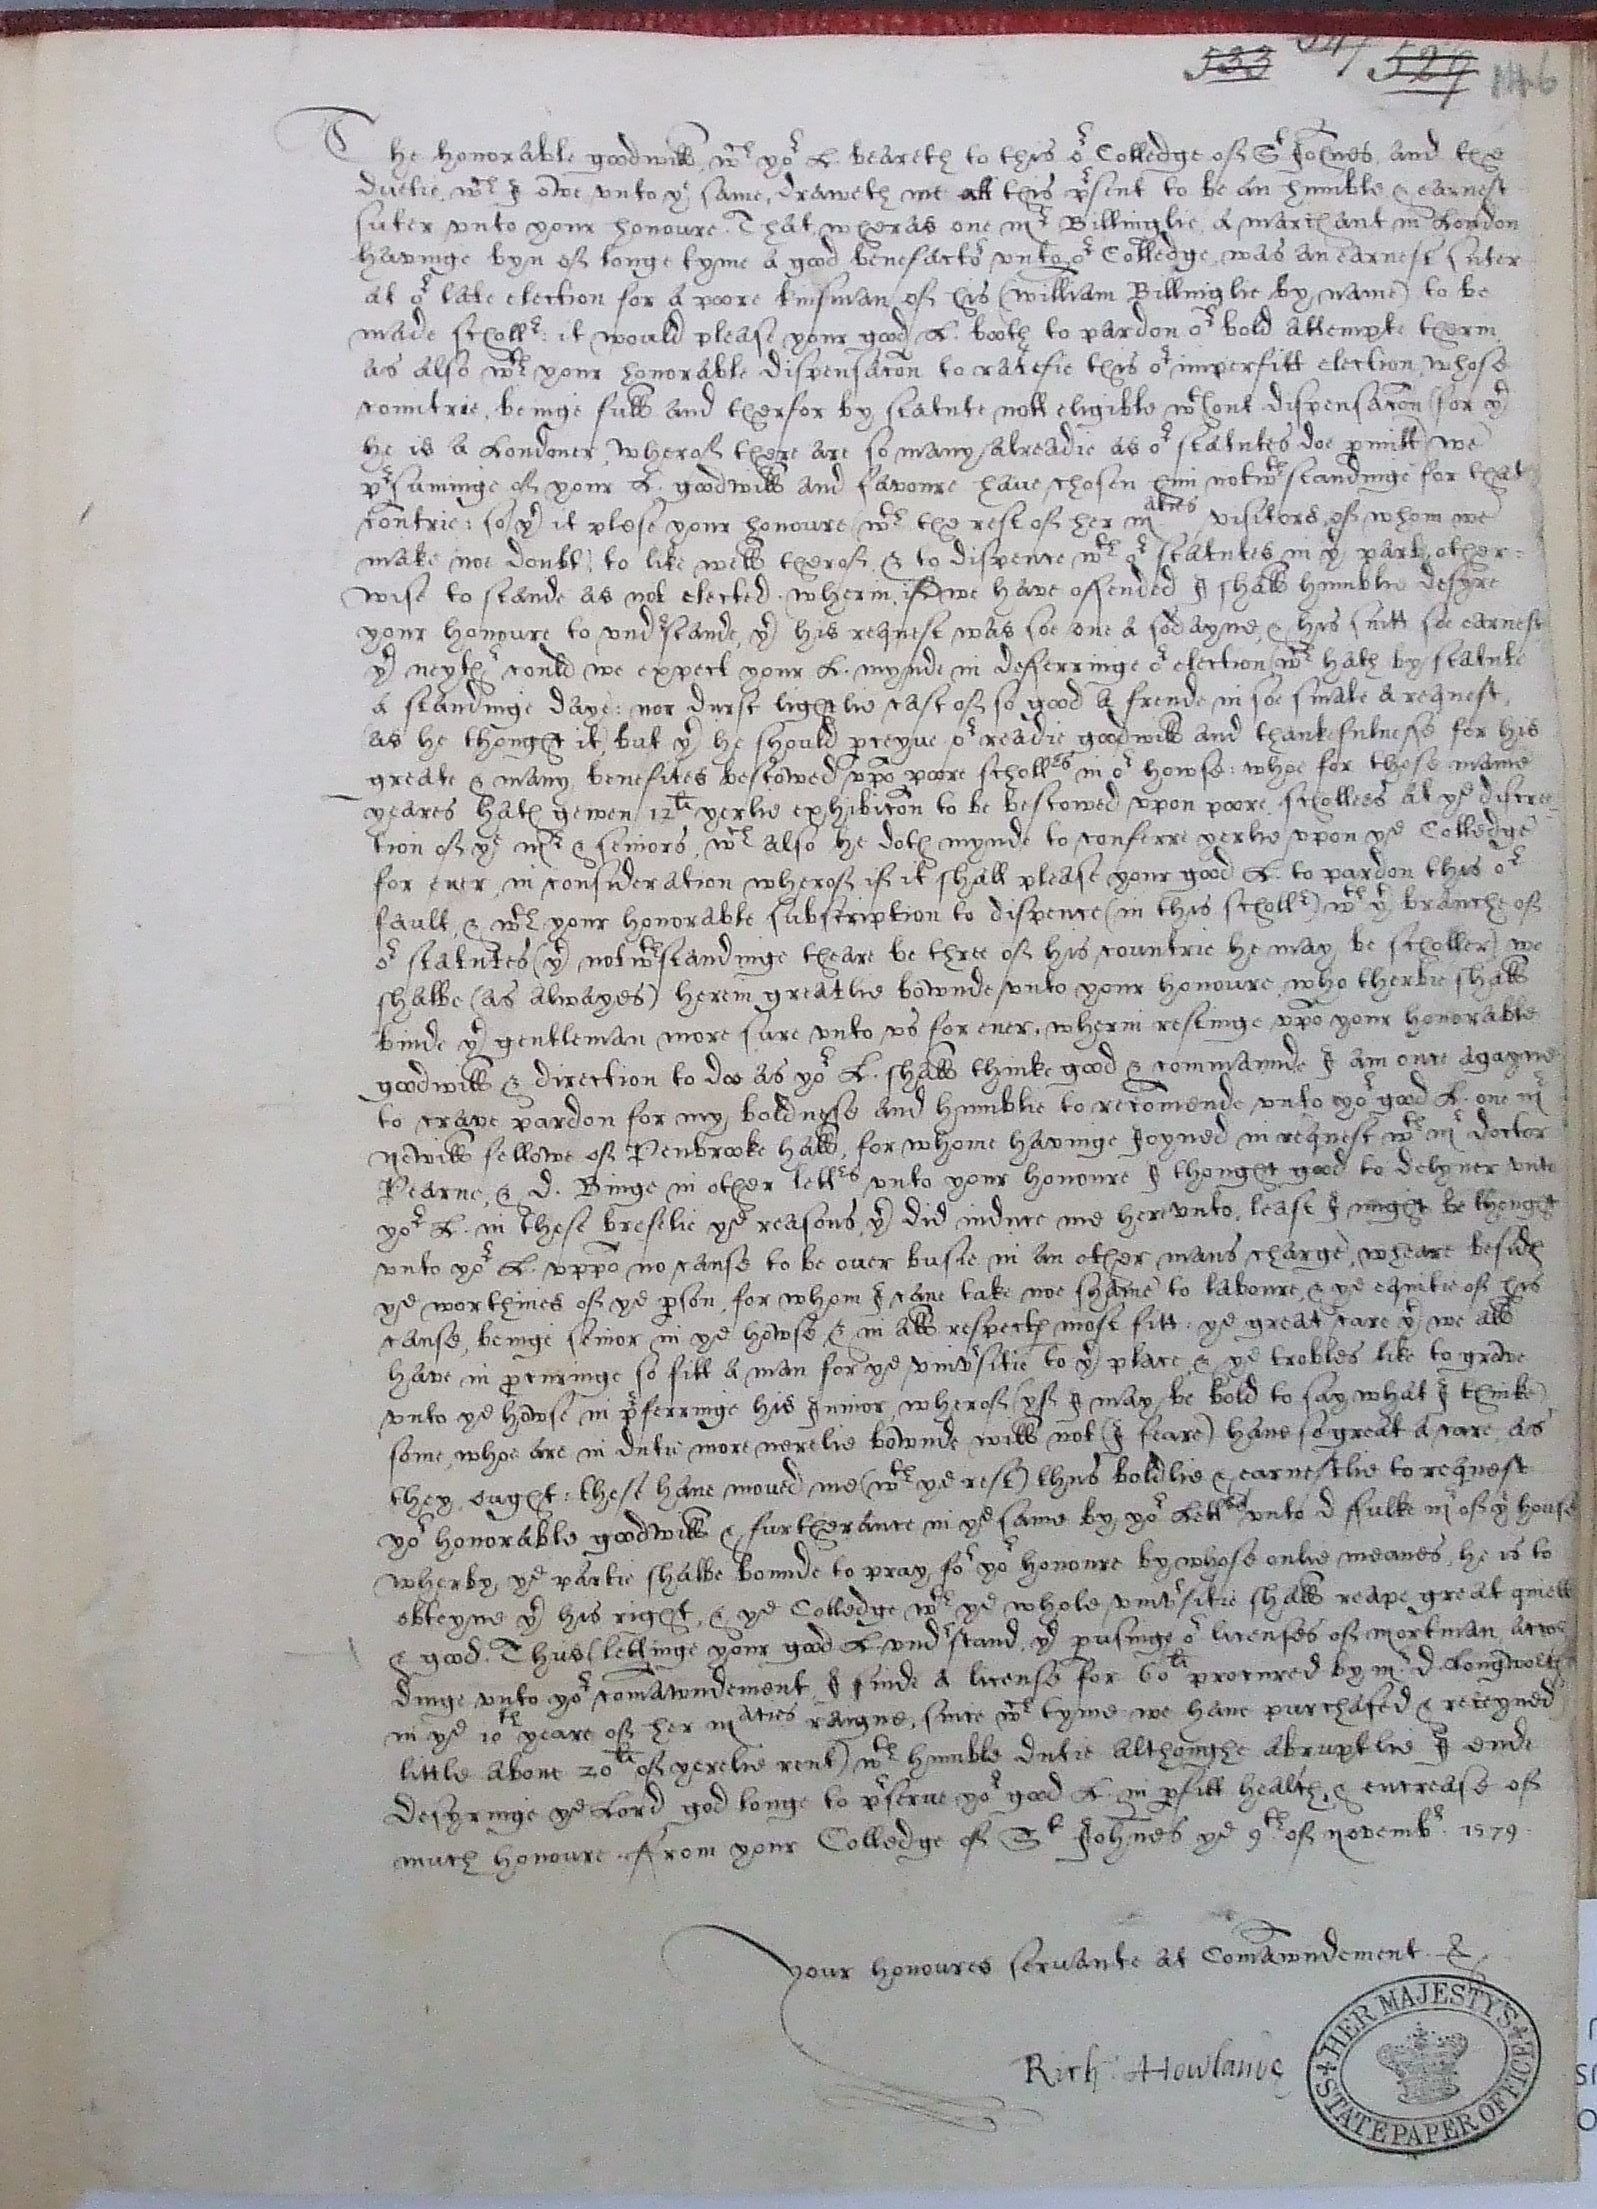 533 547 529 146
The honorable goodwill, wch yor L. beareth to this or Colledge of St Johnes, and the
duetie, wch I owe vnto ye same, draweth me att this prsent to be an humble & earnest
suter vnto your honoure. That wheras one mr Billinglie, a marchant in London
havinge byn of longe tyme a good benefactor vnto or Colledge, was an earnest suter
at or late election for a poore kinsman of his (william Billinglie by name) to be
made schollr: it would please your good L. booth to pardon or bold attempte therin,
as also wth your honorable dispensacon to ratefie this or imperfitt election, whose
countrie, beinge full and therfor by statute nott eligible wthout dispensacon (for yt
he is a Londoner, wherof there are so many alreadie as or statutes doe pmitt) we
prsuminge of your L. goodwill and favoure have chosen him notwthstandinge for that
contrie: so yt it plese your honoure (wth the rest of her maties visitors, of whom we
make noe doubt) to like well therof, & to dispence wth or statutes in yt part, other=
wise to stande as not elected. wherin, if we have offended I shall humblie desyre
your honoure to vndrstande, yt his request was soe one a sodayne, & his suitt soe earnest
yt neythr could we expect your L. mynde in deferringe or election (wch hath by statute
a standinge daye: nor durst lightlie cast of so good a frende in soe smale a request,
as he thought it, but yt he should pceyue or readie goodwill and thankefulness for his
greate & many benefites bestowed vpo poore schollrs in or howse: whoe for those manie
yeares hath gewen 12li yerlie exhibicon to be bestowed vpon poore schollers at ye discre=
tion of ye mr & seniors, wch also he doth mynde to conferre yerlie vpon ye Colledge
for ever, in consideration wherof if it shall please your good L. to pardon this or
fault, & wth your honorable subscription to dispence (in this schollr) wth yt branche of
or statutes (yt notwthstandinge theare be three of his countrie he may be scholler) we
shalbe (as alwayes) herein greatlie bownde vnto your honoure, who therbie shall
binde yt gentleman more sure vnto vs for ever. wherin restinge vpo your honorable
goodwill & direction to doo as yor L. shall thinke good & commaunde I am once agayne
to crave pardon for my boldnesse and humblie to recomende vnto yor good L. one mr
newill fellowe of Penbrooke hall, for whome havinge Joyned in request wth mr doctor
Pearne, & d. Binge in other lettrs vnto your honoure I thought good to delyuer vnto
yor L. in these breeflie ye reasons, yt did induce me herevnto, least I might be thought
vnto yor L. vppo no cause to be over busie in an other mans charge, wheare beside
ye worthines of ye pson, for whom I cane take noe shame to laboure, & ye equitie of his
cause, beinge senior in ye howse & in all respects most fitt: ye great care yt we all
have in pcuringe so fitt a man for ye vnivrsitie to yt place & ye trobles like to growe
vnto ye howse in prferringe his Junior, wherof (yf I may be bold to say what I thinke)
some, whoe are in dutie more nerelie bownde will not (I feare) have so great a care, as
they ought: these have moved me (wth ye rest) thus boldlie & earnestlie to request
yor honorable goodwill & furtherance in ye same by yor lettrs vnto d ffulke mr of yt house
wherby ye partie shalbe bounde to pray for yor honoure by whose onlie meanes, he is to
obteyne yt his right, & ye Colledge wth ye whole vnivrsitie shall reape great quiett
& good. Thus (lettinge your good L. vndrstand, yt pusinge or licenses of mortman accor
dinge vnto yor comawndement I finde a license for 60li procured by mr d. Longworth
in ye 10th yeare of her maties raigne, since wch tyme we have purchased & receyned
little above 20li of yerelie rent) wth humble dutie althoughe abruptlie I ende
Desyringe ye Lord god longe to prserue yor good L. in pfitt health, & encrease of
much honoure. From your Colledge of St Johnes ye 9th of novembr. 1579.
your honoures servante at Comawndement &
Rich: Howlande
HER MAJESTY'S STATE PAPER OFFICE